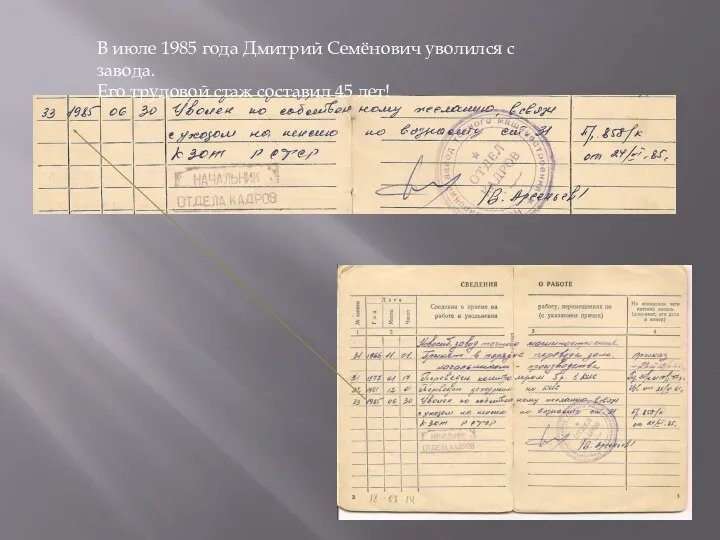 В июле 1985 года Дмитрий Семёнович уволился с
завода.
Его трудовой стаж составил 45 лет!
33 1985 06 30 Уволен по собственному желанию в связи
с уходом на пенсию по возрасту ст. 31
КЗОТ РСФСР
Пр. 858/к
от 24/VI-85.
НАЧАЛЬНИК
ОТДЕЛА КАДРОВ
ОТДЕЛ
КАДРОВ
/В. Арсеньев/
СВЕДЕНИЯ О РАБОТЕ
№ записи
Дата
Год
Месяц
Число
Сведения о приеме на
работе и увольнении
работу, перемещениях по
(с указанием причин)
На основании чего
внесена запись
(документ, его дата
и номер)
1 2 3 4
завод точного машиностроения
Принят в порядке перевода
начальником производства
приказ
Переведен контролером 5 р. в
Переведен
33 1985 06 30 Уволен по собственному желанию в связи
с уходом на пенсию по возрасту ст. 31
КЗОТ РСФСР
Пр. 858/к
от 24/VI-85.
НАЧАЛЬНИК
ОТДЕЛА КАДРОВ
ОТДЕЛ
КАДРОВ
/В. Арсеньев/
2
3